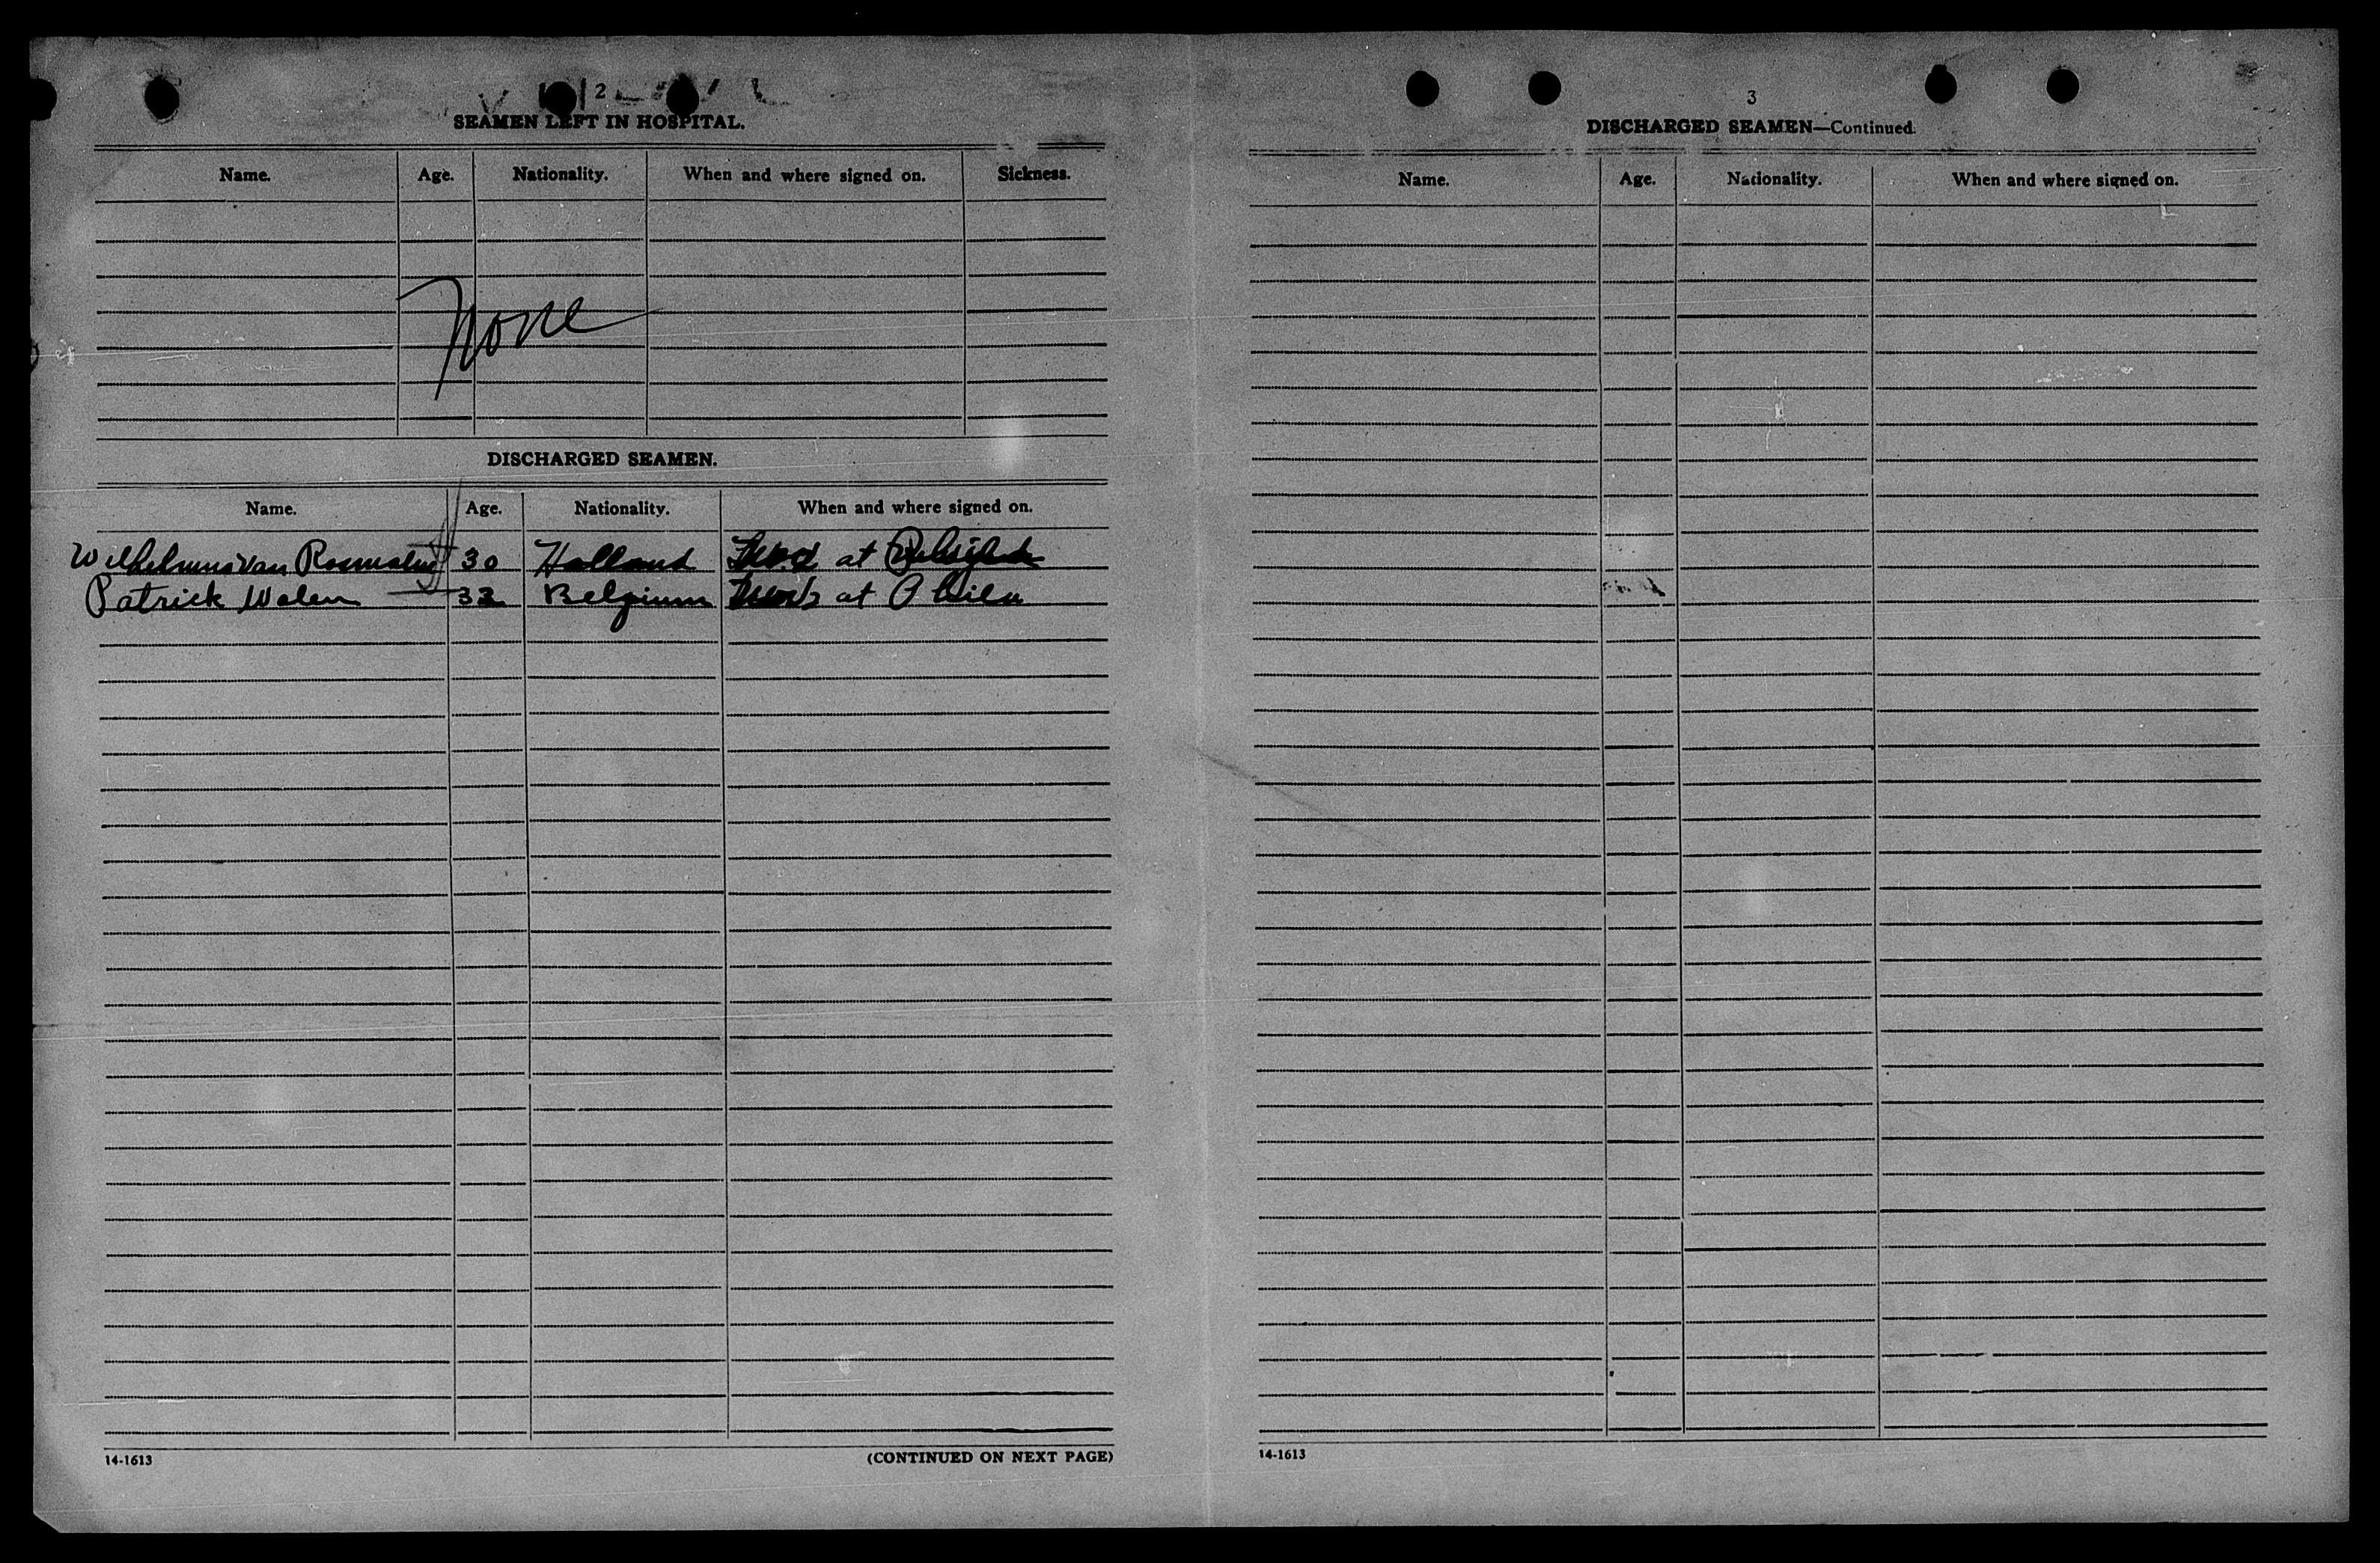 2
SEAMEN LEFT IN HOSPITAL.
Name. Age. Nationality. When and where signed on. Sickness.
None
DISCHARGED SEAMEN.
Name. Age. Nationality. When and where signed on.
Van 30 Holland at
Patrick Walen 33 Belgium at
14-1613 (CONTINUED ON NEXT PAGE)
3
DISCHARGED SEAMEN—Continued.
Name. Age. Nationality. When and where signed on.
14-1613